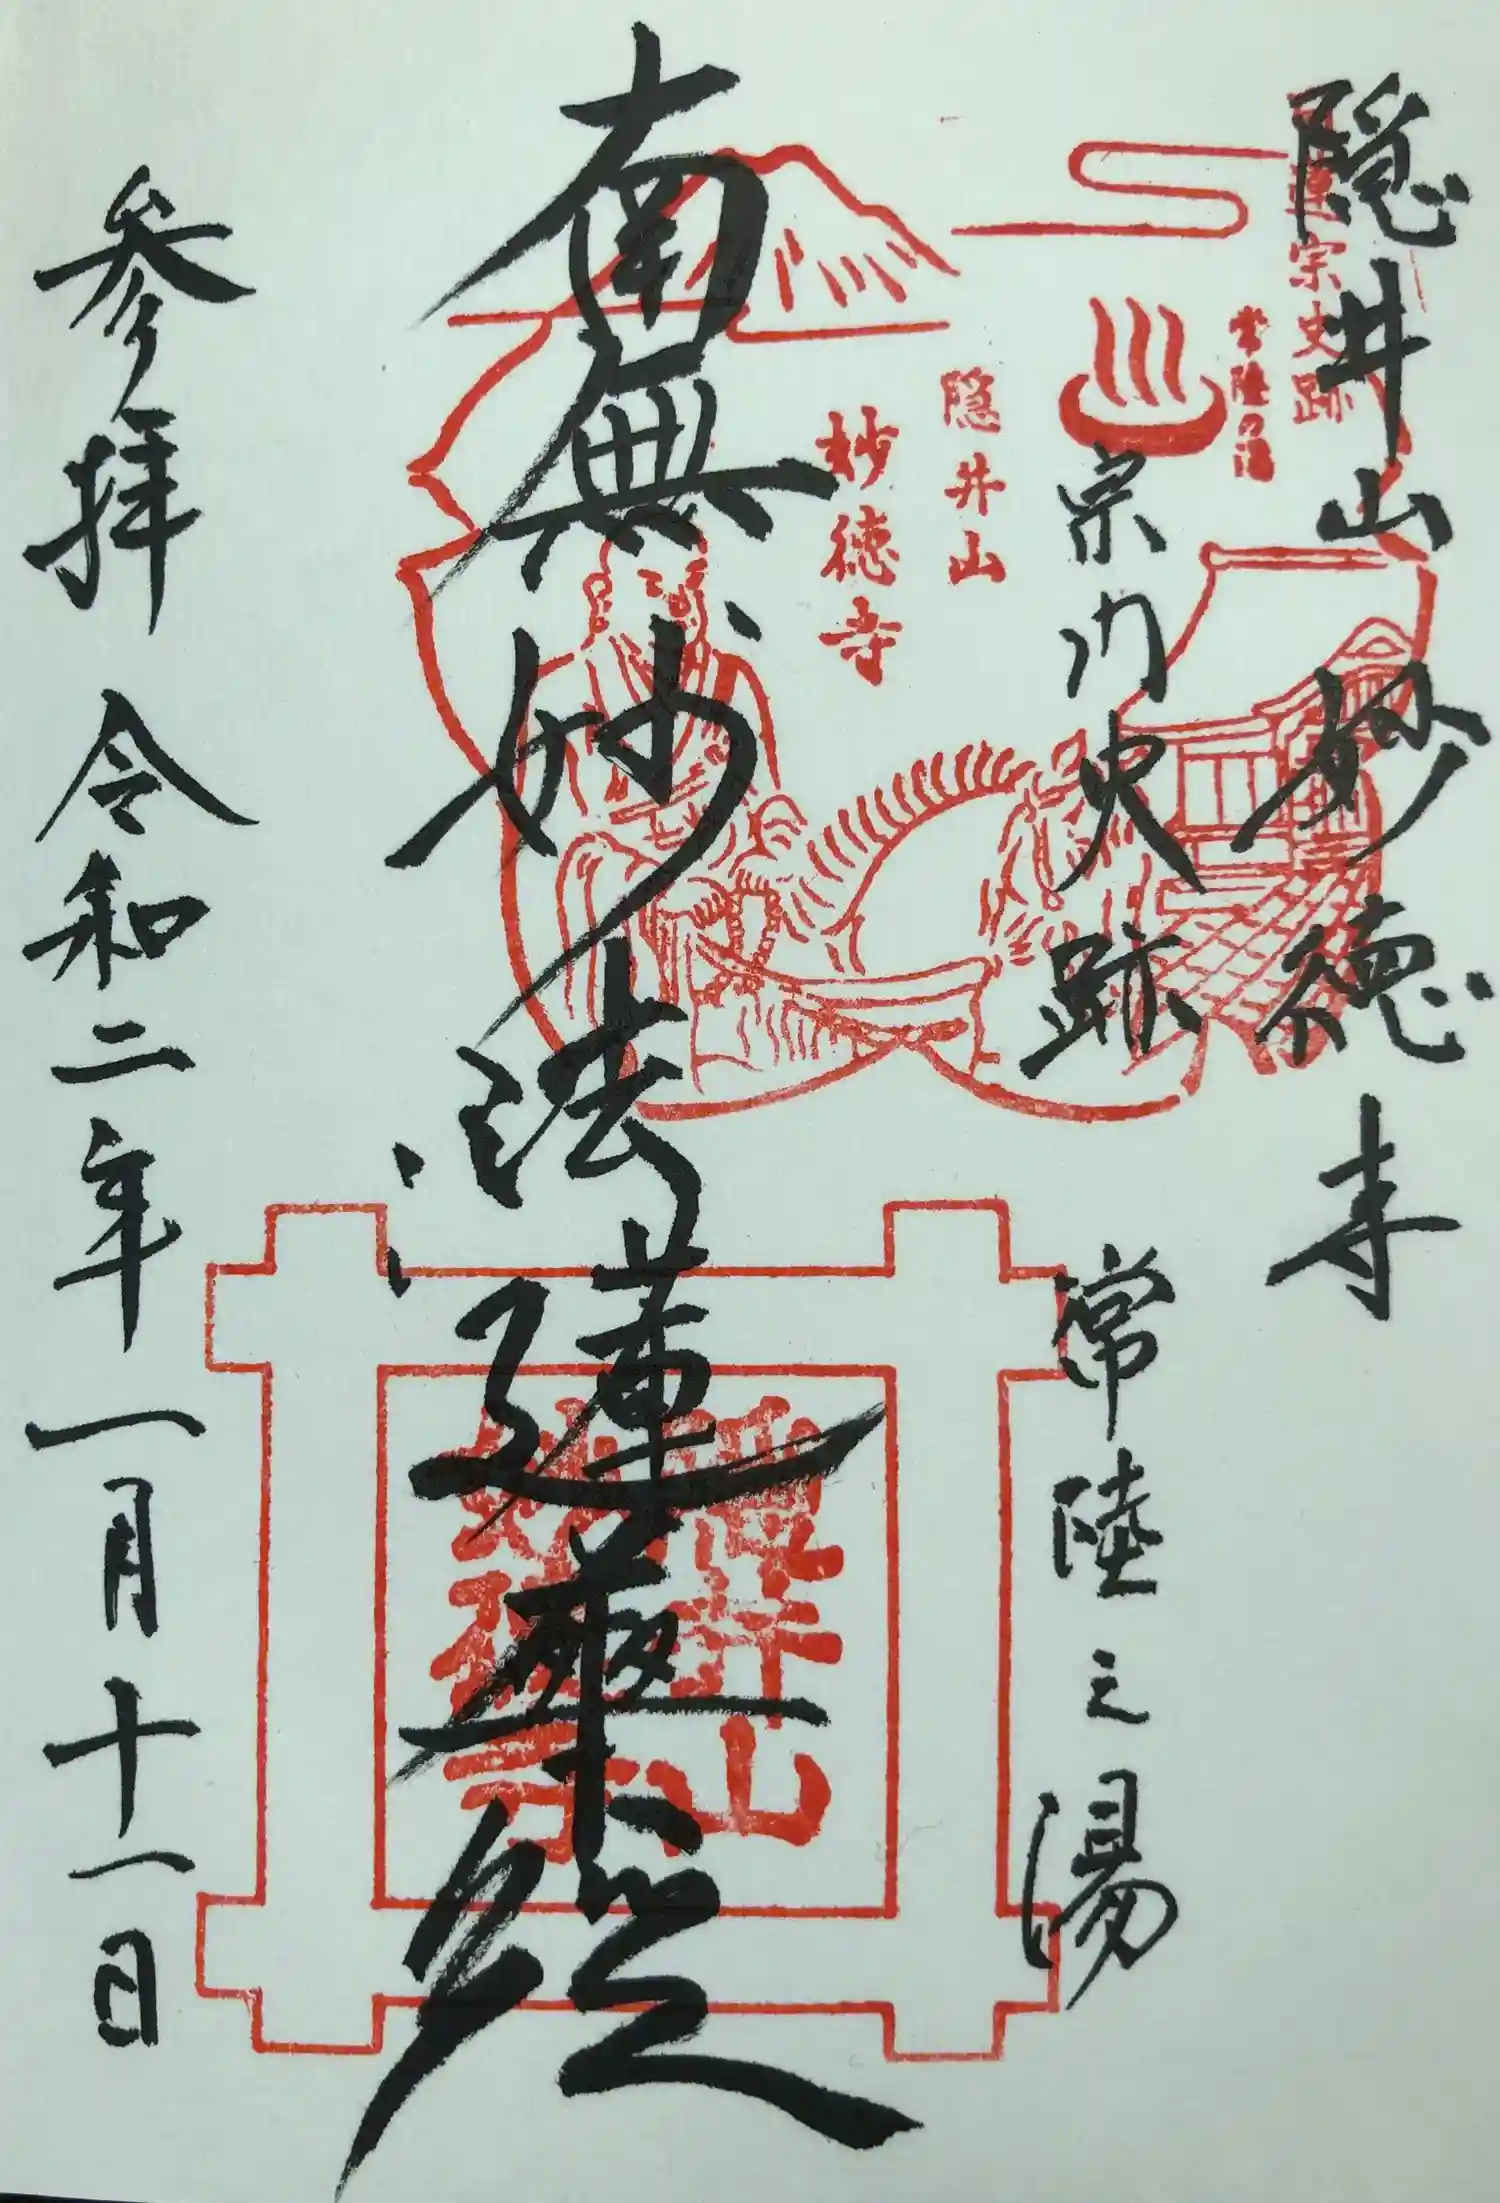 隠井山 妙徳寺
日蓮宗史跡
常陸の湯
宗門史跡 常陸之湯
隠井山
妙徳寺
南無妙法蓮華経
隠井山
妙徳寺
参拝 令和二年一月十一日